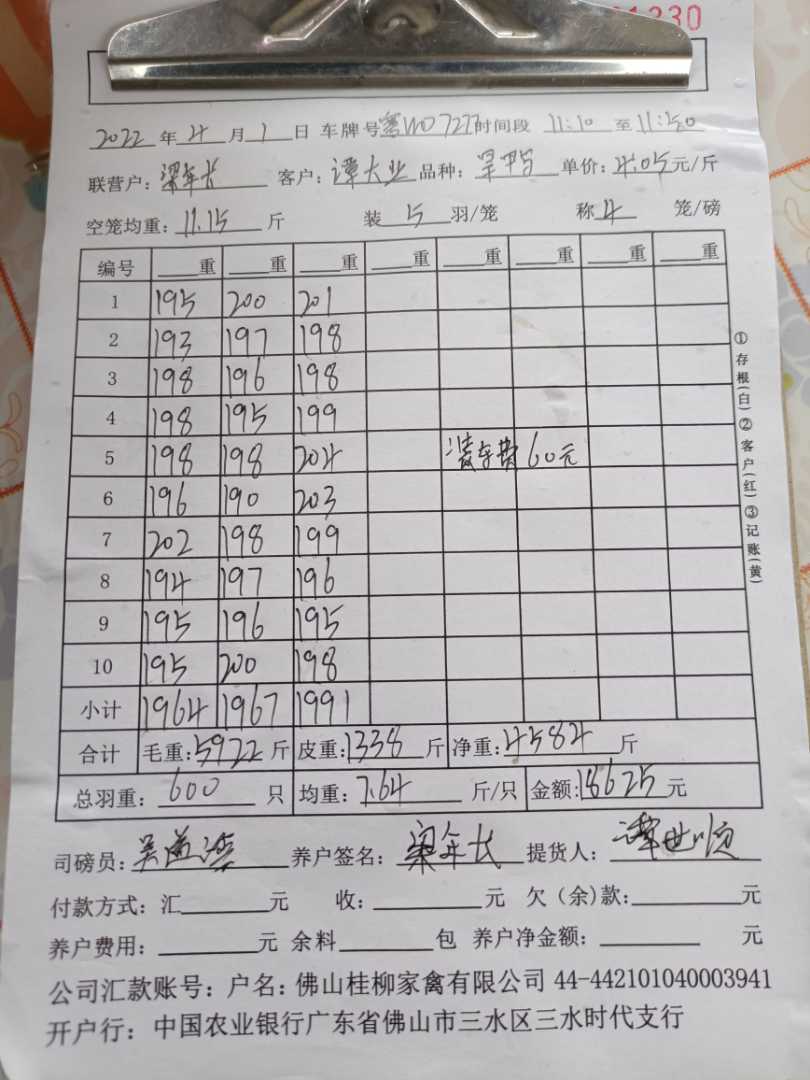 1230
2022 年 4 月 1 日 车牌号 粤W07277 时间段 11:10 至 11:50
联营户: 梁年长 客户: 谭大业 品种: 单价: 4.05 元/斤
空笼均重: 11.15 斤 装 5 羽/笼 称 4 笼/磅
编号 重 重 重 重 重 重 重 重
1 195 200 201
2 193 197 198
3 198 196 198
4 198 195 199
5 198 198 204 装车费 60元
6 196 190 203
7 202 198 199
8 194 197 196
9 195 196 195
10 195 200 198
小计 1964 1967 1991
合计 毛重: 5922 斤 皮重: 1338 斤 净重: 4584 斤
总羽重: 600 只 均重: 7.64 斤/只 金额: 18625 元
司磅员: 养户签名: 梁年长 提货人: 谭世顺
付款方式: 汇 元 收: 元 欠(余)款: 元
养户费用: 元 余料 包 养户净金额: 元
公司汇款账号: 户名: 佛山桂柳家禽有限公司 44-442101040003941
开户行: 中国农业银行广东省佛山市三水区三水时代支行
①存根(白)②客户(红)③记账(黄)